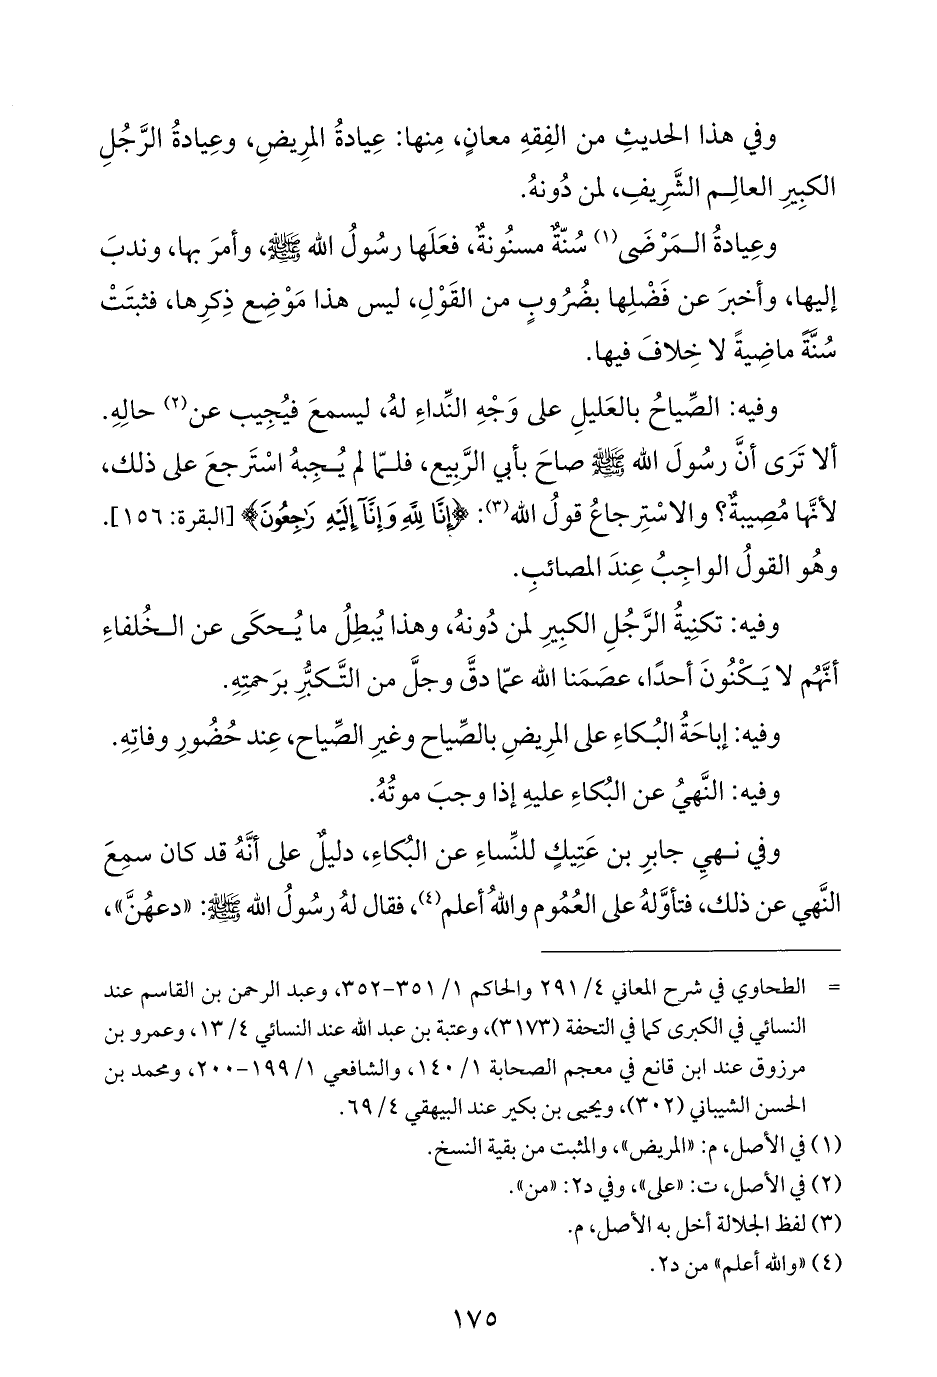 وفي هذا الحديثِ من الفِقهِ معانٍ، مِنها: عِيادةُ المرِيضِ، وعِيادةُ الرَّجُلِ
الكبِيرِ العالِمِ الشَّرِيفِ، لمن دُونهُ.
وعِيادةُ المَرْضَى(١) سُنّةٌ مسنُونةٌ، فعَلَها رسُولُ الله ﷺ، وأمرَ بها، وندبَ
إليها، وأخبرَ عن فَضْلِها بضُرُوبٍ من القَوْلِ، ليس هذا مَوْضِع ذِكرِها، فثبتَتْ
سُنَّةً ماضِيةً لا خِلافَ فيها.
وفيه: الصِّياحُ بالعَليلِ على وَجْهِ النِّداءِ لهُ، ليسمعَ فيُجِيب عن(٢) حالِهِ.
ألا تَرَى أنَّ رسُولَ الله ﷺ صاحَ بأبي الرَّبِيع، فلمّا لم يُجِبهُ اسْتَرجعَ على ذلك،
لأنَّها مُصِيبةٌ؟ والاسْتِرجاعُ قولُ الله(٣): ﴿إِنَّا لِلَّهِ وَإِنَّآ إِلَيْهِ رَٰجِعُونَ﴾ [البقرة: ١٥٦].
وهُو القولُ الواجِبُ عِندَ المصائبِ.
وفيه: تكنِيةُ الرَّجُلِ الكبيرِ لمن دُونهُ، وهذا يُبطِلُ ما يُحكَى عن الخُلفاءِ
أنَّهُم لا يَكْنُونَ أحدًا، عصَمَنا الله عمّا دقَّ وجلَّ من التَّكبُّرِ برَحمتِهِ.
وفيه: إباحَةُ البُكاءِ على المرِيضِ بالصِّياح وغيرِ الصِّياح، عِند حُضُورِ وفاتِهِ.
وفيه: النَّهيُ عن البُكاءِ عليهِ إذا وجبَ موتُهُ.
وفي نهيِ جابرِ بن عَتِيكٍ للنِّساءِ عن البُكاءِ، دليلٌ على أنَّهُ قد كان سمِعَ
النَّهي عن ذلك، فتأوَّلهُ على العُمُوم واللهُ أعلم(٤)، فقال لهُ رسُولُ الله ﷺ: «دعهُنَّ»،
= الطحاوي في شرح المعاني ٤/ ٢٩١ والحاكم ١/ ٣٥١-٣٥٢، وعبد الرحمن بن القاسم عند
النسائي في الكبرى كما في التحفة (٣١٧٣)، وعتبة بن عبد الله عند النسائي ٤/ ١٣، وعمرو بن
مرزوق عند ابن قانع في معجم الصحابة ١/ ١٤٠، والشافعي ١/ ١٩٩-٢٠٠، ومحمد بن
الحسن الشيباني (٣٠٢)، ويحيى بن بكير عند البيهقي ٤/ ٦٩.
(١) في الأصل، م: «المريض»، والمثبت من بقية النسخ.
(٢) في الأصل، ت: «على»، وفي د٢: «من».
(٣) لفظ الجلالة أخل به الأصل، م.
(٤) «والله أعلم» من د٢.
١٧٥